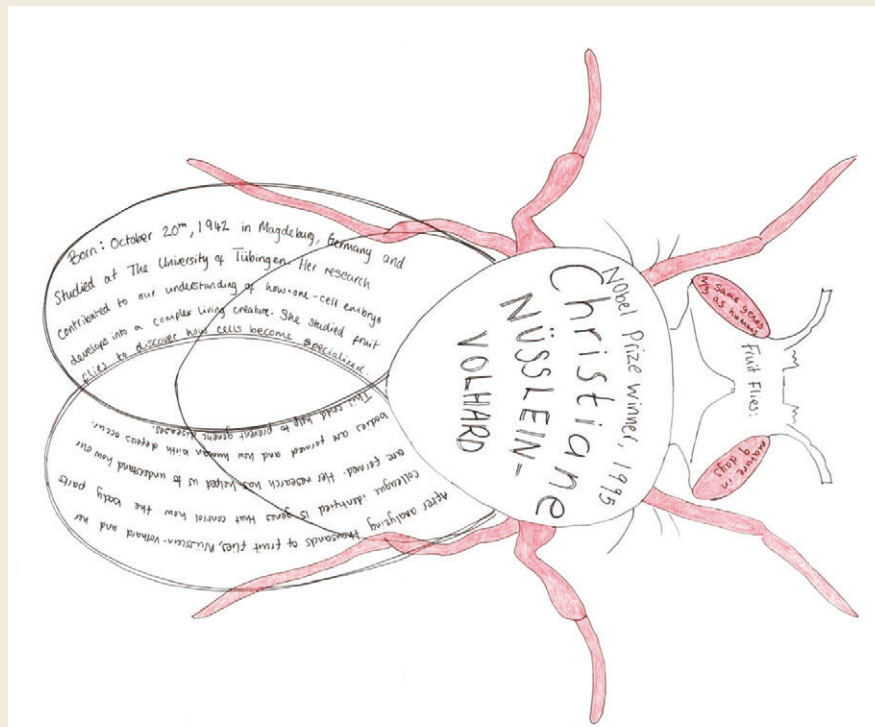 Fruit Flies:
2/3 same genes
as humans
mature in
9 days
Nobel Prize winner, 1995
Christiane
NÜSSLEIN-
VOLHARD
Born: October 20th, 1942 in Magdeburg, Germany and
Studied at The University of Tübingen. Her research
contributed to our understanding of how one-cell embryo
develops into a complex living creature. She studied fruit
flies to discover how cells become specialized.
After analyzing thousands of fruit flies, Nüsslein-Volhard and her
colleague identified 15 genes that control how the body parts
are formed. Her research has helped us to understand how our
bodies are formed and how human birth defects occur.
This could help to prevent genetic diseases.